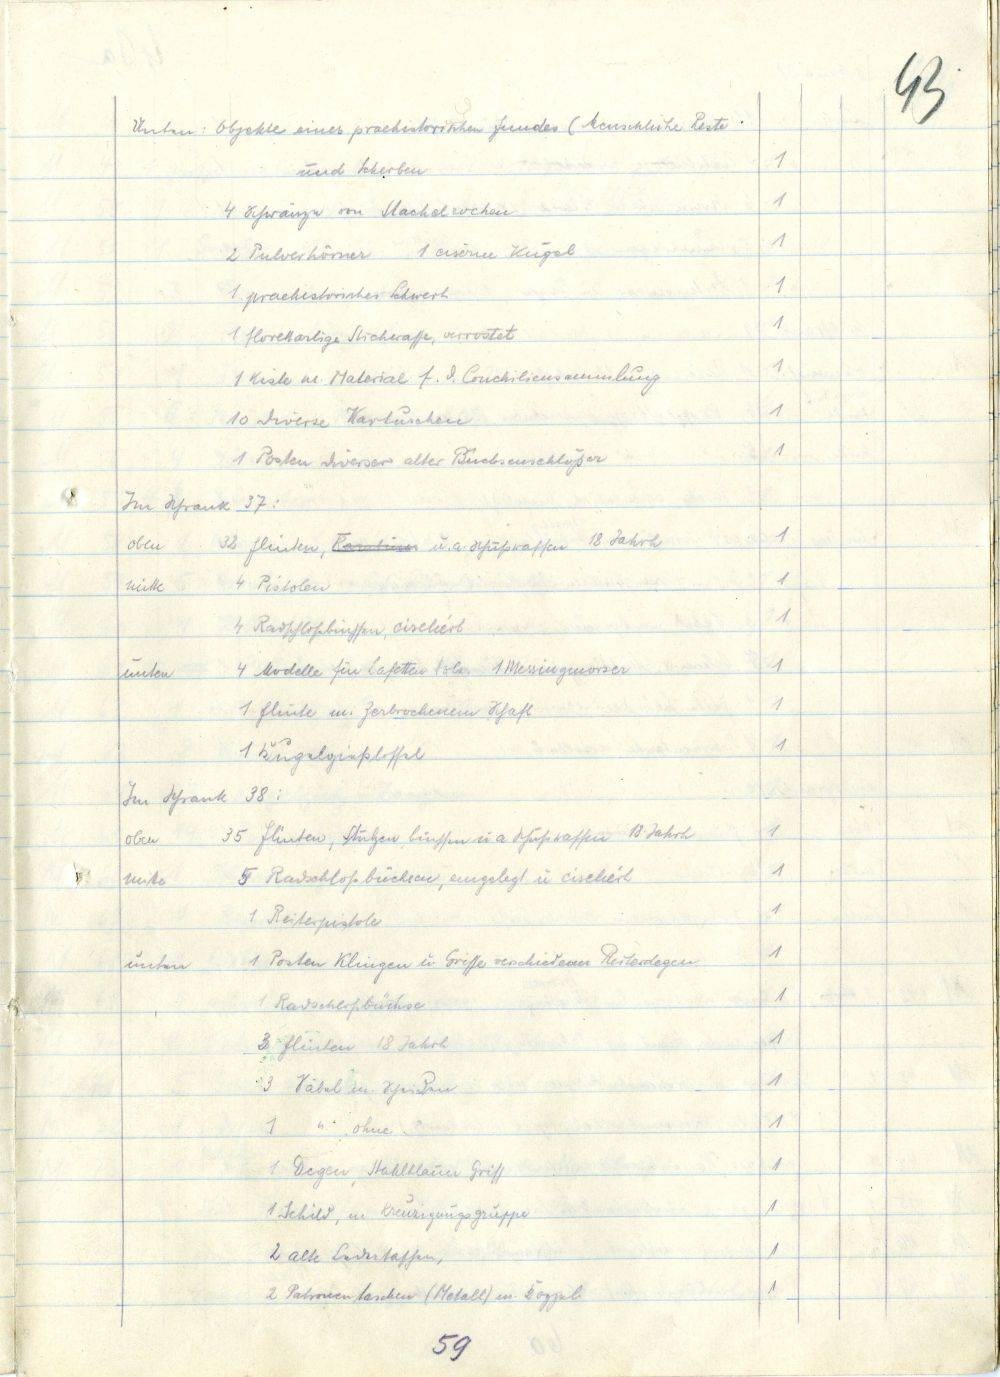 43
Unten: Objekte eines praehistorischen Fundes (Menschliche Reste
und Scherben 1
4 Schwänze von Stachelrochen 1
2 Pulverhörner 1 eiserne Kugel 1
1 praehistorisches Schwert 1
1 florettartige Stichwaffe, verrostet 1
1 Kiste m. Material f. d. Conchiliensammlung 1
10 Diverse Kartuschen 1
1 Posten diverser alter Büchsenschlößer 1
Im Schrank 37:
oben 32 Flinten, u. a. Schußwaffen 18 Jahrh 1
mitte 4 Pistolen 1
4 Radschloßbüchsen, ciseliert 1
unten 4 Modelle für Lafetten 1 Messingmörser 1
1 Flinte m. Zerbrochenem Schaft 1
1 Kugelgießlöffel 1
Im Schrank 38:
oben 35 Flinten, Stutzen büchsen u a Schußwaffen 18 Jahrh 1
mitte 5 Radschloßbüchsen, eingelegt u ciseliert 1
1 Reiterpistole 1
unten 1 Posten Klingen u Griffe verschiedener Reiterdegen 1
1 Radschloßbüchse 1
3 Flinten 18 Jahrh 1
3 Säbel m. Scheiden 1
1 " ohne " 1
1 Degen, Griff 1
1 Schild, m Kreuzigungsgruppe 1
2 alte 1
2 Patronentaschen (Metall) m. 1
59